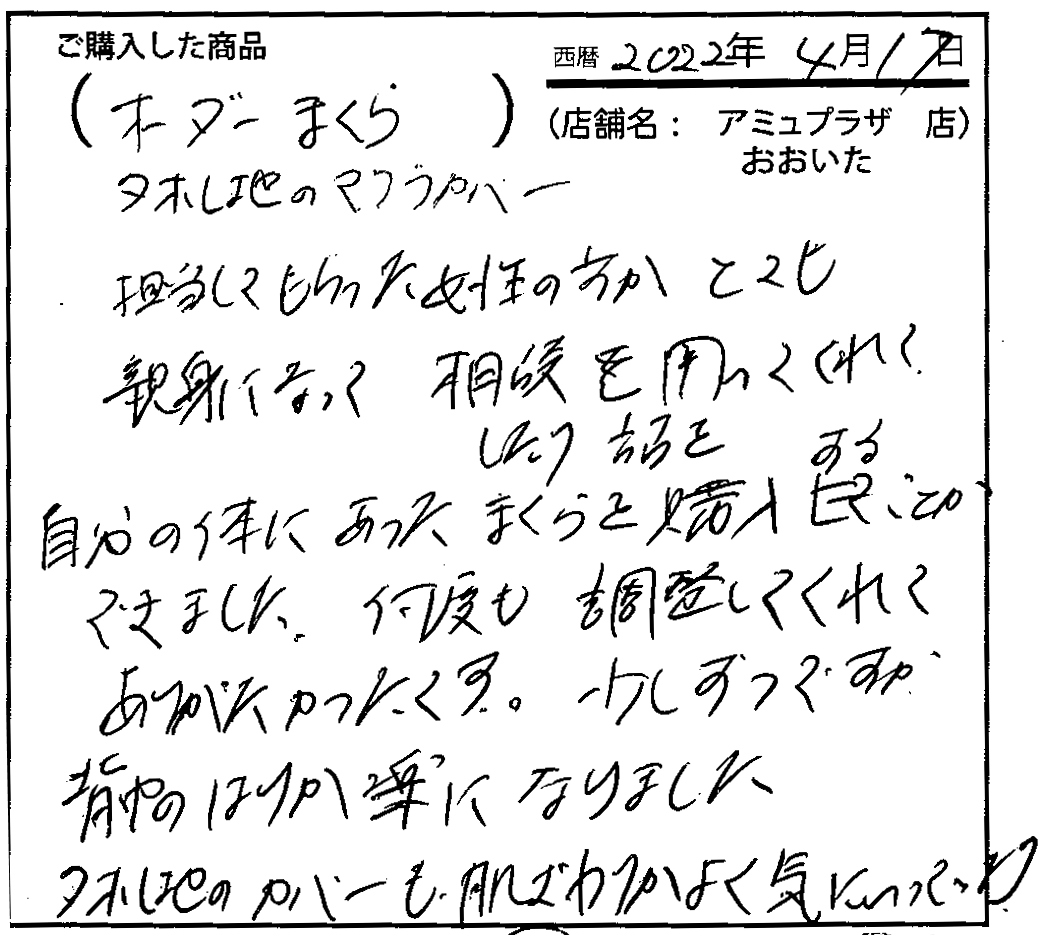 ご購入した商品
西暦 2022年 4月17日
(オーダーまくら)
(店舗名： アミュプラザ 店)
おおいた
タオル地のマクラカバー
担当してもらった女性の方が とても
親身になって 相談を 聞いてくれて
したり 話を する
自分の体に あった まくらを 購入 ことが
できました。何度も 調整してくれて
ありがたかったです。少しずつですが
背中のはりが 楽に なりました
タオル地の カバーも 肌ざわりがよく 気にいってい